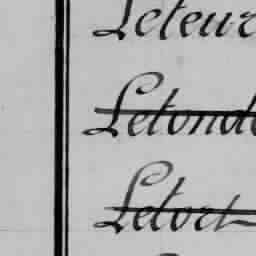 Leteur
Letond
Letort